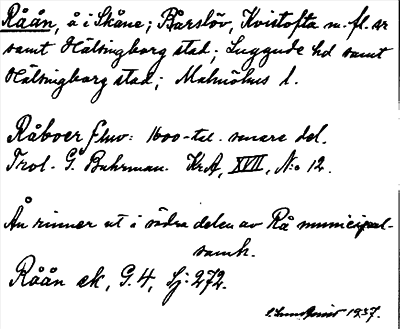 Råån, å i Skåne; Bårslöv, Kvistofta m. fl. sr
samt Hälsingborg stad; Luggude hd samt
Hälsingborg stad; Malmöhus l.
Råboer fluv: 1600-tal. senare del.
Trol. G. Buhrman. KrA, XVII, N:o 12.
Ån rinner ut i södra delen av Rå municipal-
samh.
Råån ek, G. 4, Sj: 272.
1937.